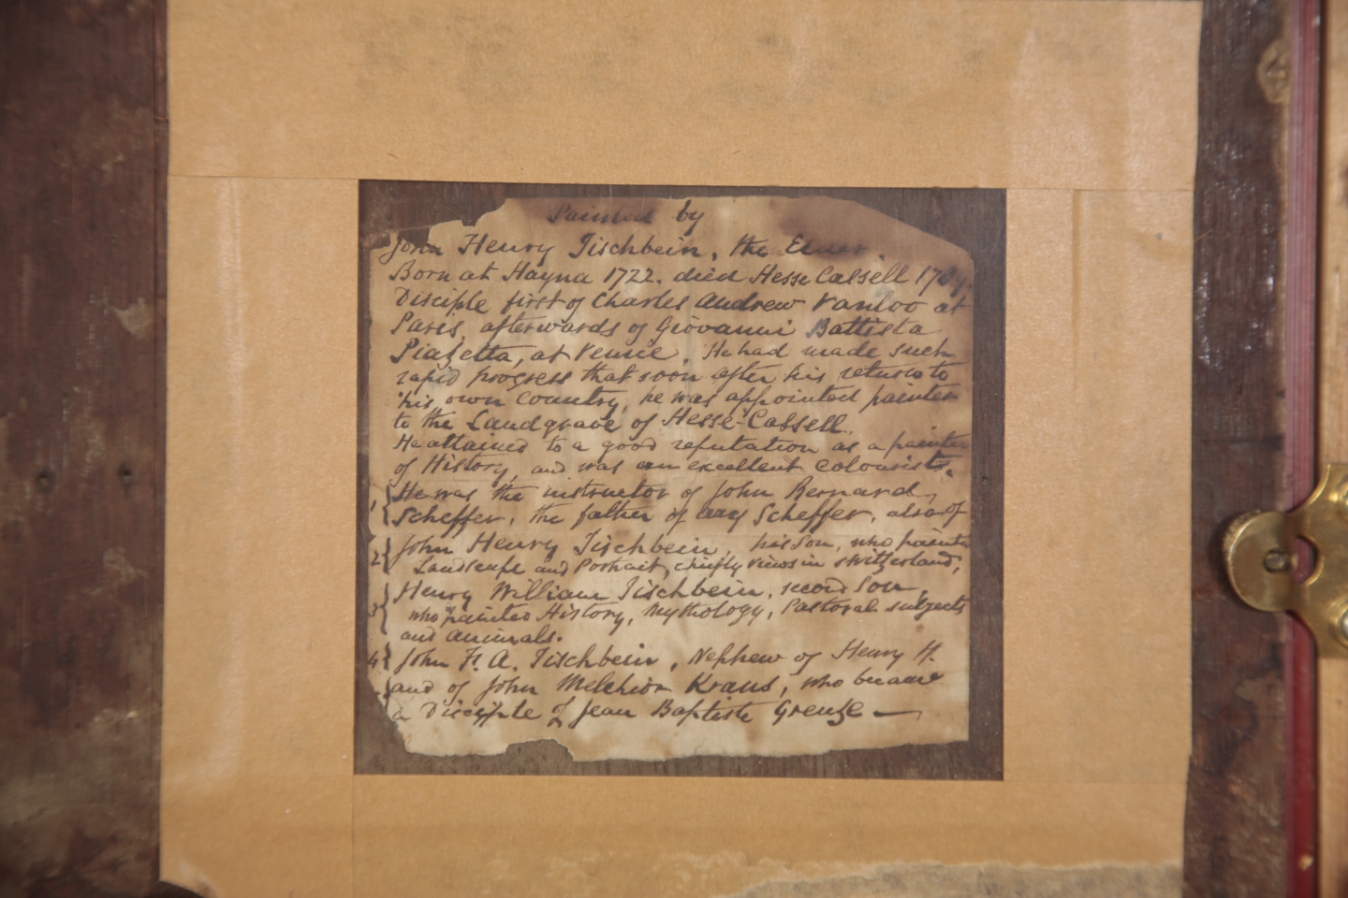 Painted by
John Henry Tischbein, the Elder
Born at Hayna 1722. died Hesse Cassell 1789.
Disciple first of Charles Andrew Vanloo at
Paris, afterwards of Giovanni Battista
Piazetta, at Venice. He had made such
rapid progress that soon after his return to
his own Country, he was appointed painter
to the Landgrave of Hesse-Cassell.
He attained to a good reputation as a painter
of History, and was an excellent colourist.
1{ He was the instructor of John Bernard
Scheffer, the father of Ary Scheffer, also of
2{ John Henry Tischbein, his Son, who painted
Landscape and Portrait, chiefly views in Switzerland,
3{ Henry William Tischbein, second Son,
who painted History, Mythology, Pastoral subjects
and animals.
4{ John F. A. Tischbein, Nephew of Henry H.
and of John Melchior Kraus, who became
a Disciple of Jean Baptiste Greuze —